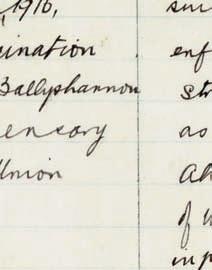 , 1916,
ination
Ballyshannon
ensary
Union
su
enf
str
as
ab
of
in p